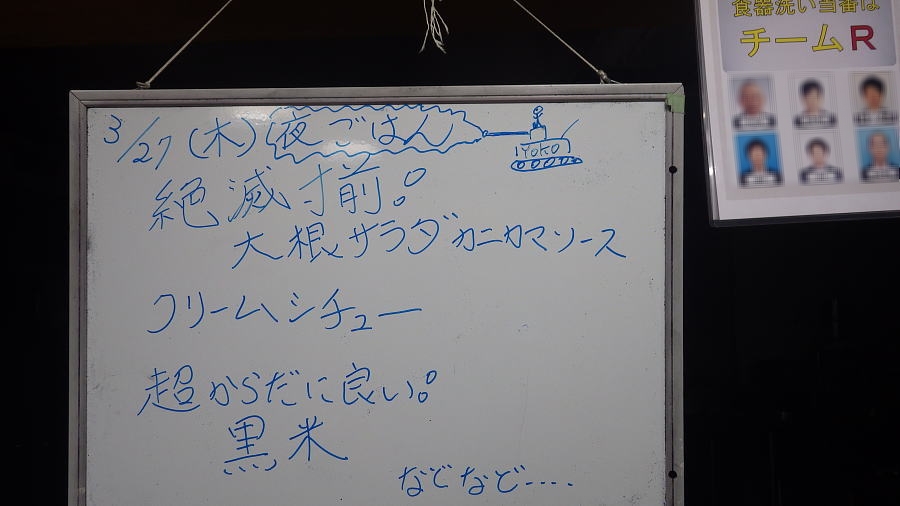 3/27(木)夜ごはん
IYOKO
絶滅寸前。
大根サラダカニカマソース
クリームシチュー
超からだに良い。
黒米
などなど‥‥
食器洗い当番は
チームR